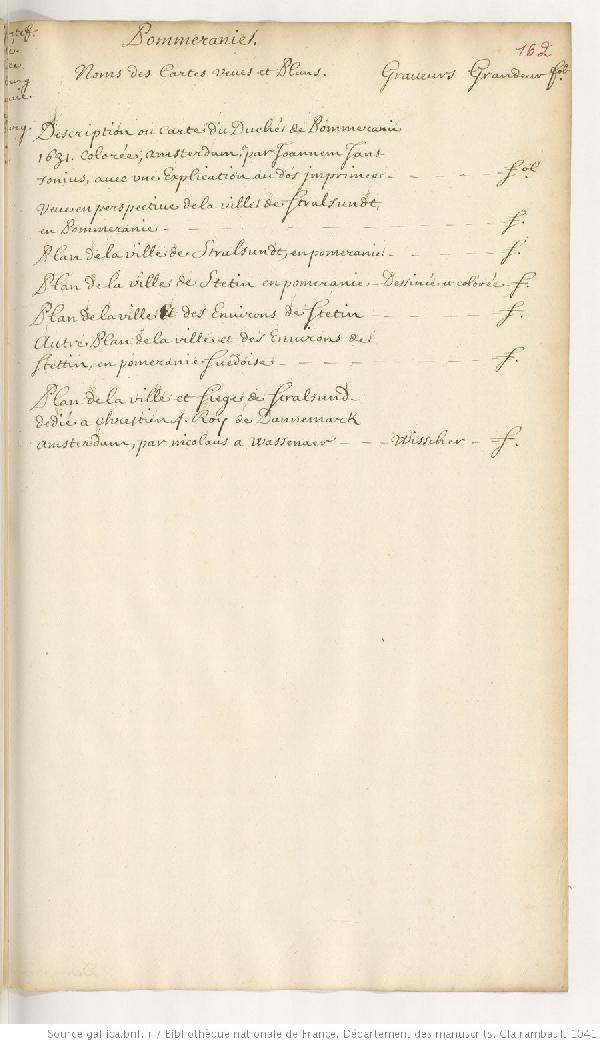 Pommeranie.
162
Noms des Cartes veues et Plans. Graveurs Grandeur fol.
Description ou Carte du Duché de Pommeranie
1631. colorée, amsterdam, par Joannem Jans-
sonius, avec une Explication au dos imprimée - - - - - fol
Veue en perspective de la ville de Stralsundt,
en Pommeranie - - - - - f.
Plan de la ville de Stralsundt, en pomeranie - - - - f.
Plan de la ville de Stetin en pomeranie - Dessinée et colorée f.
Plan de la ville et des Environs de Stetin - - - - f.
Autre Plan de la ville et des Environs de
Stettin, en pomeranie suedoise - - - - - f.
Plan de la ville et siege de Stralsund
dedié a christien 4. Roy de Dannemarck
amsterdam, par nicolaus a Wassenaer - - - Wisscher - f.
Source gallica.bnf.fr / Bibliothèque nationale de France. Département des manuscrits. Clairambault 1041